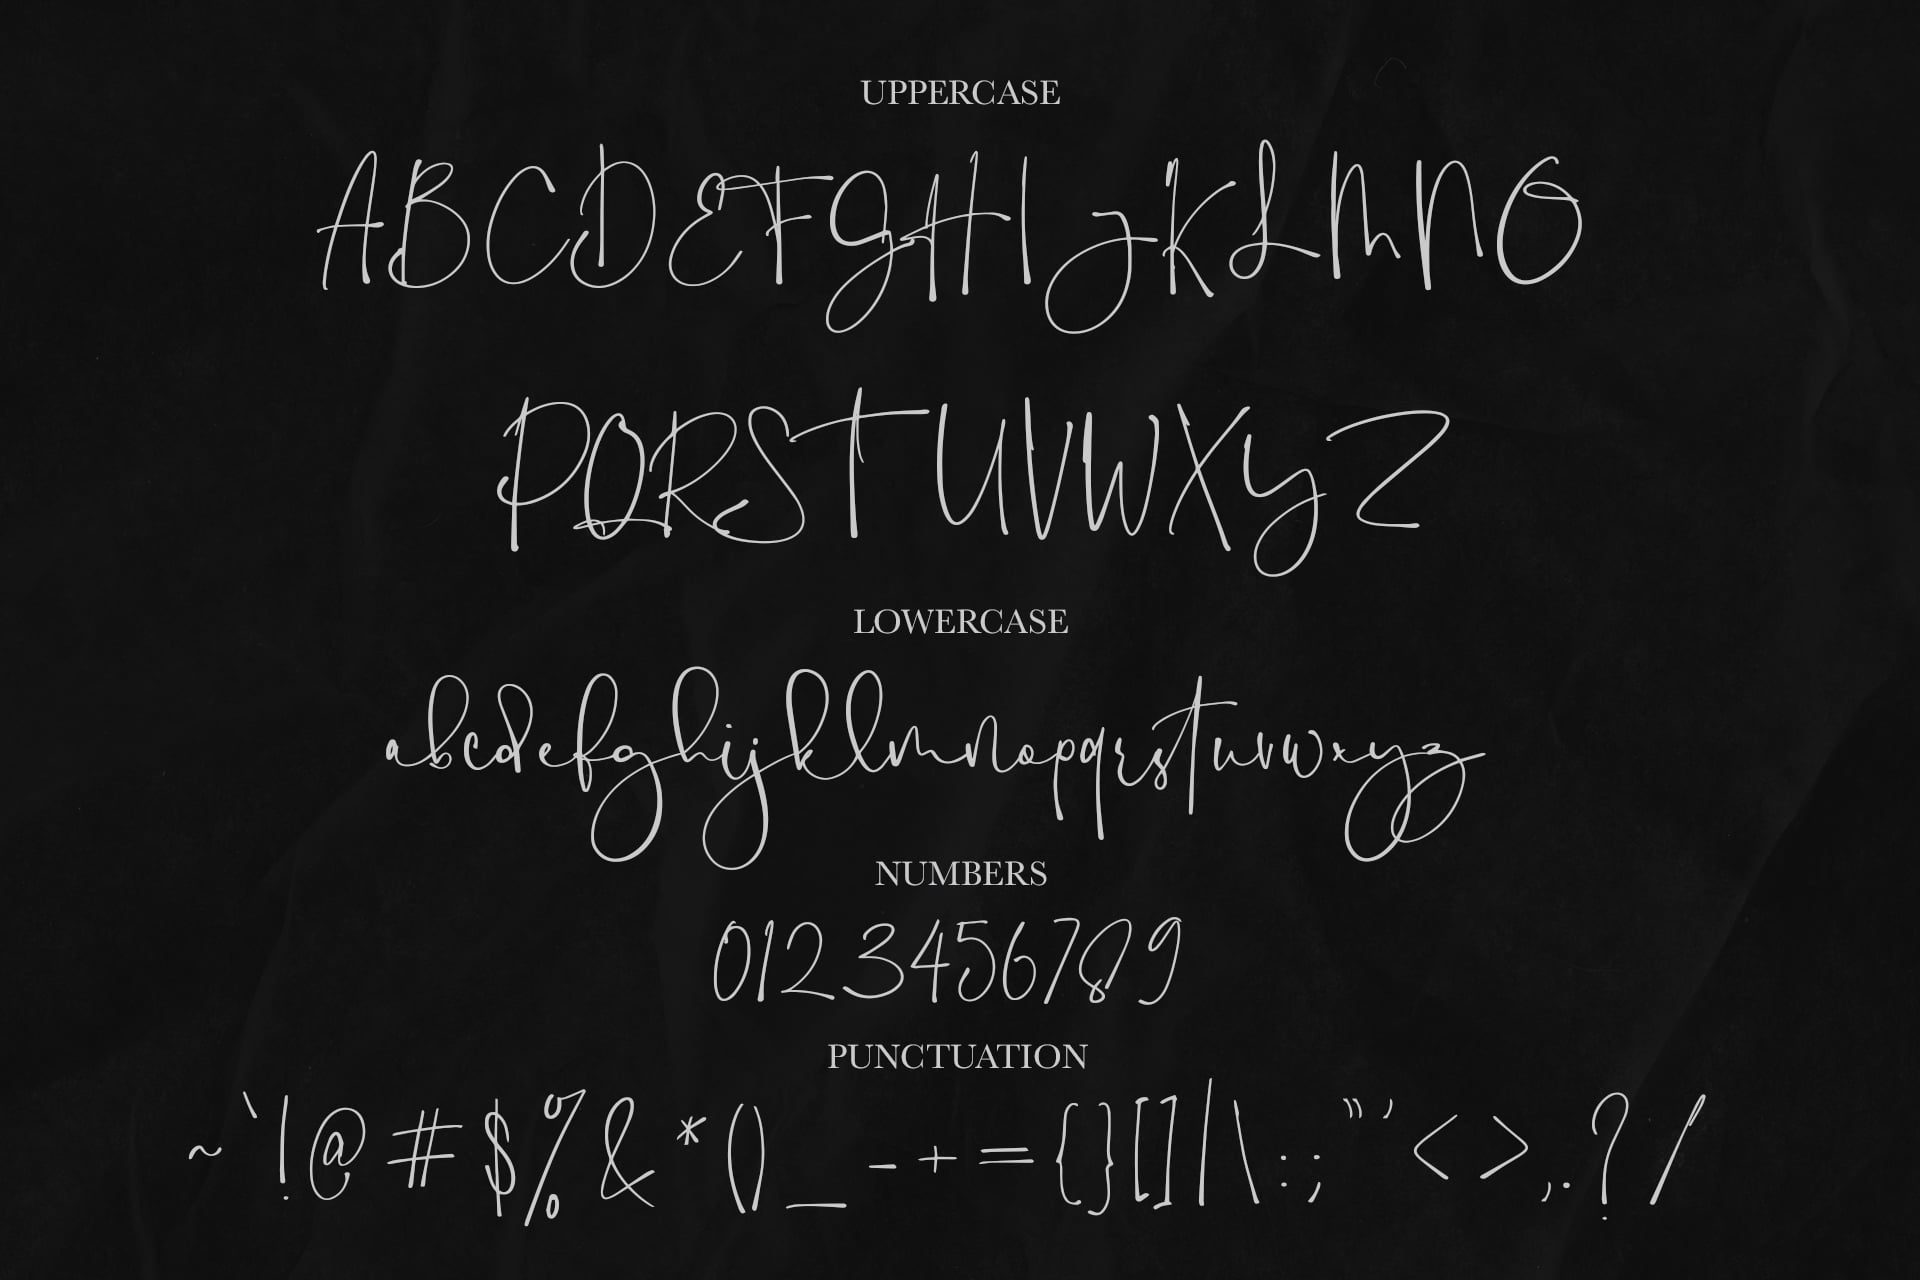 UPPERCASE
ABCDEFGHIJKLMNO
PQRSTUVWXYZ
LOWERCASE
abcdefghijklmnopqrstuvwxyz
NUMBERS
0123456789
PUNCTUATION
~`!@#$%&*()_-+={}[]|\:;"'<>,.?/